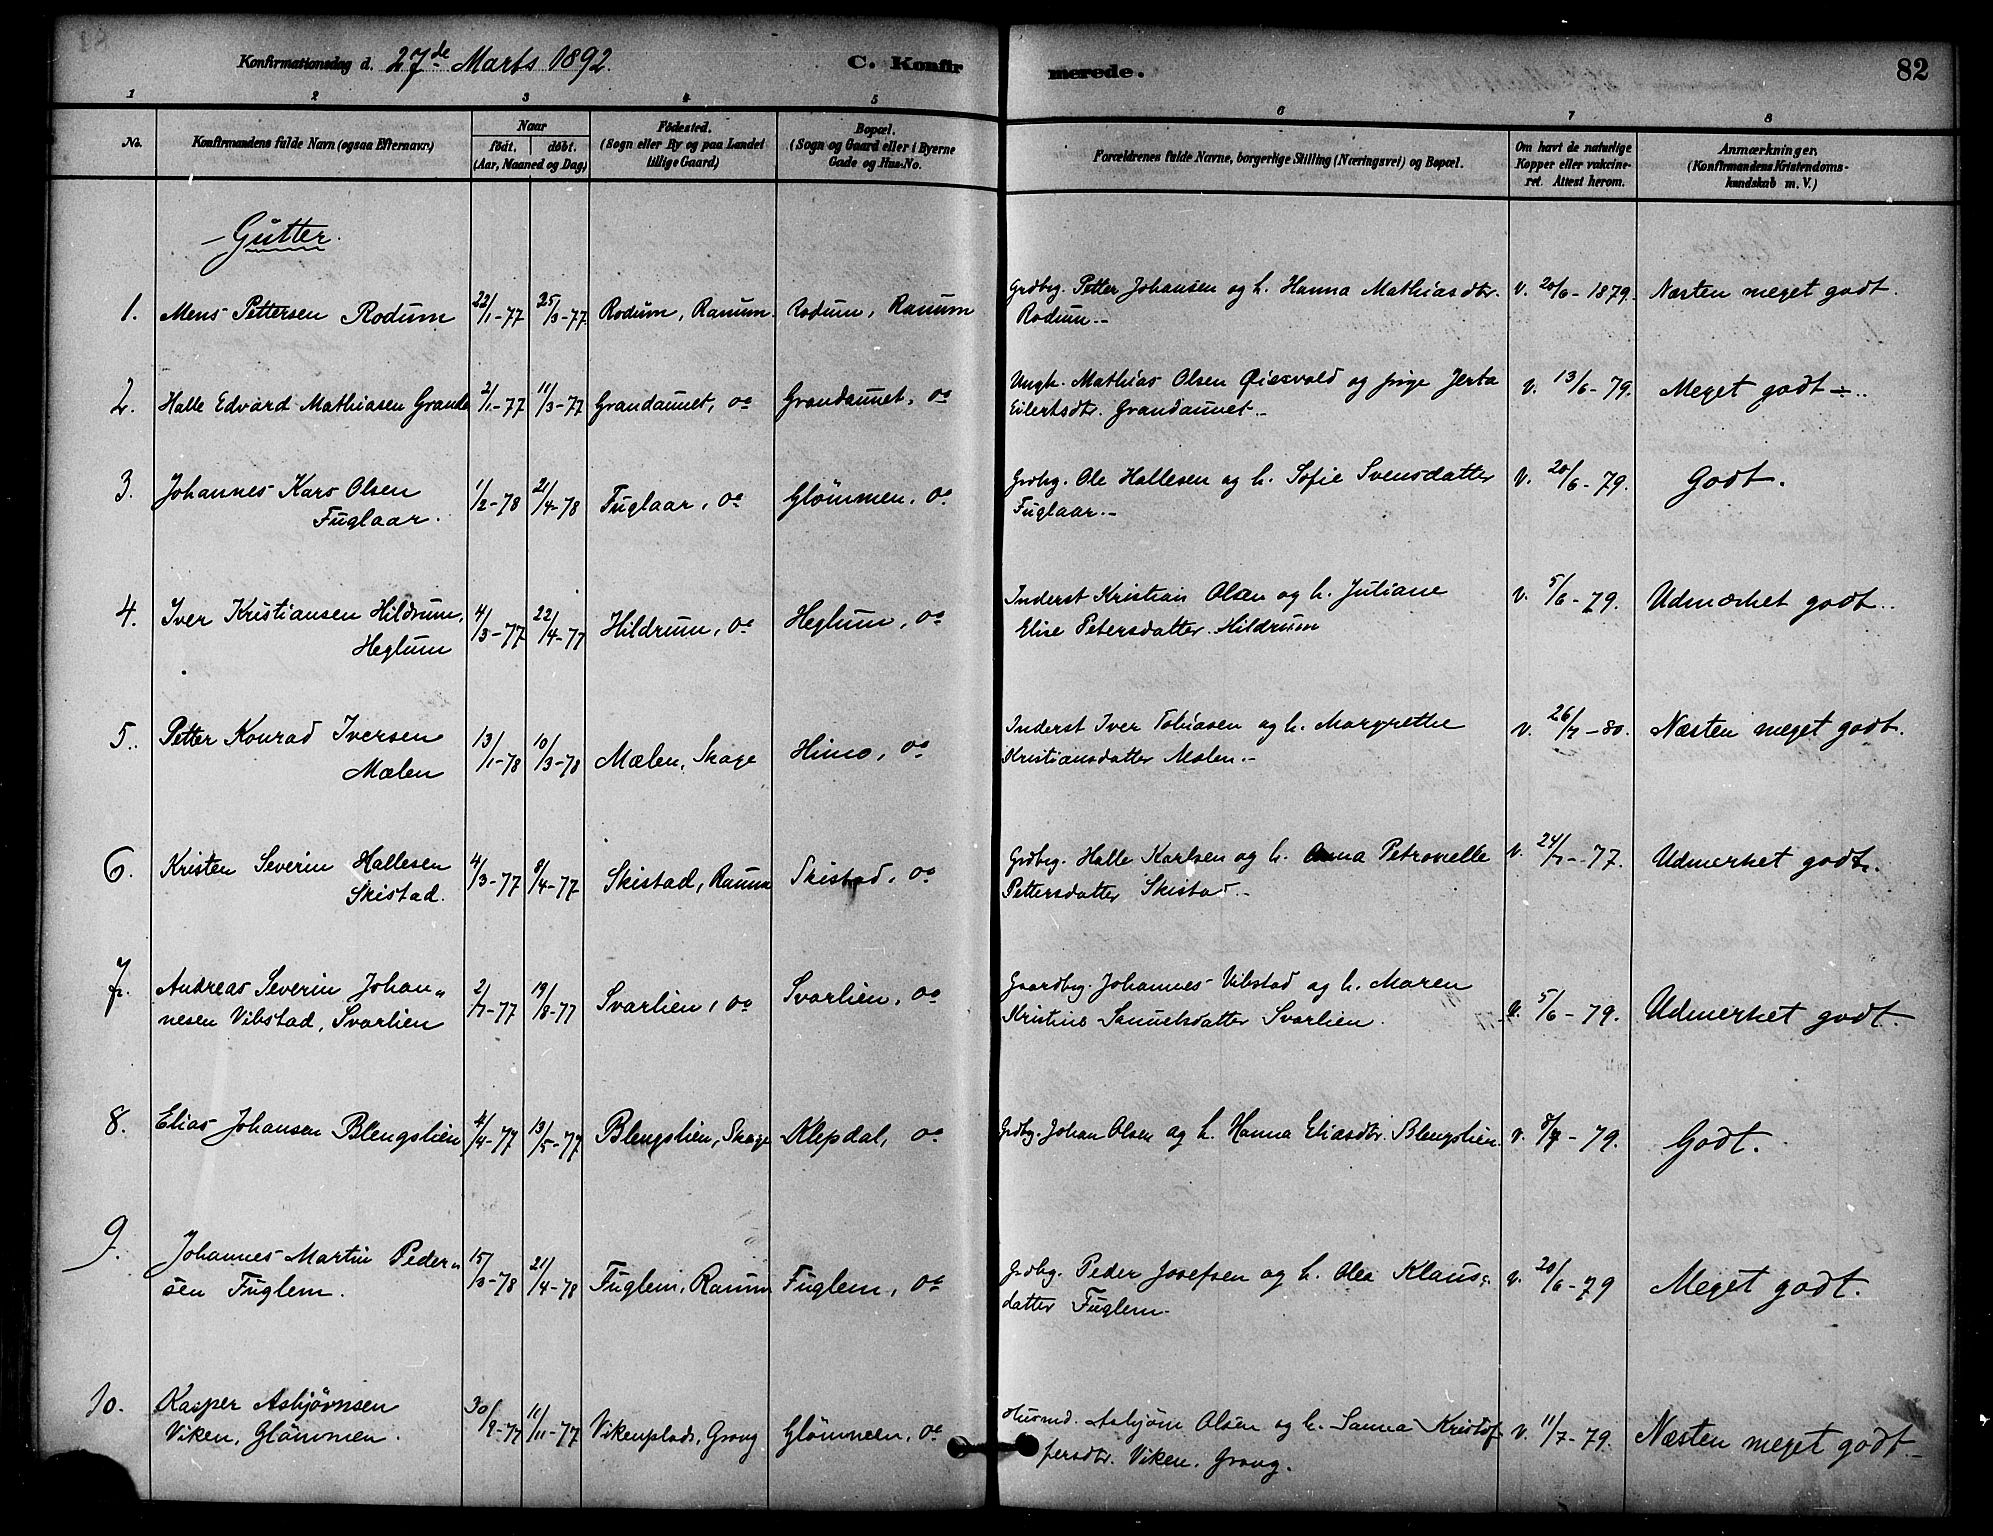 Konfirmationsdag d. 27de Marts 1892. C. Konfirmerede. 82
1 2 3 4 5 6 7 8
No. Konfirmandens fulde Navn (ogsaa Efternavn) Naar født. døbt. (Aar, Maaned og Dag) Fødested. (Sogn eller By og paa Landet tillige Gaard) Bopæl. (Sogn og Gaard eller i Byerne Gade og Hus-No. Forældrenes fulde Navne, borgerlige Stilling (Næringsvei) og Bopæl. Om havt de naturlige Kopper eller vakcineret. Attest herom. Anmærkninger. (Konfirmandens Kristendomskundskab m. V.)
Gutter.
1. Mens Pettersen Rodum 22/1-77 25/3-77 Rodum, Ranum. Rodum, Ranum Grdbrg. Petter Johansen og h. Hanna Mathiasdtr. V. 20/6-1879. Næsten meget godt.
Rodum.-
2. Halle Edvard Mathiasen Grande 2/1-77 11/3-77 Grandaunet, do Grandaunet, do Ungk. Mathias Olsen Øiesvold og pige Jerta V. 13/6-79. Meget godt
Eilertsdtr. Grandaunet.-
3. Johannes Karo Olsen 1/2-78 21/4-78 Fuglaar, do Glömmen, do Grdbrg. Ole Hallesen og h. Sofie Svensdatter V. 20/6-79. Godt.
Fuglaar. Fuglaar.-
4. Iver Kristiansen Hildrum, 4/3-77 22/4-77 Hildrum, do Heglum, do Inderst Kristian Olsen og h. Juliane V. 5/6-79. Udmærket godt.
Heglum Elise Petersdatter Hildrum
5. Petter Konrad Iversen 13/1-78 10/3-78 Mælen, Skage Himo, do Inderst Iver Tobiasen og h. Margrethe V. 26/7-80. Næsten meget godt.
Mælen Kristiansdatter Mælen.-
6. Kristen Severin Hallesen 4/3-77 9/4-77 Skistad, Ranum Skistad, do Grdbrg. Halle Karlsen og h. Anna Petronelle V. 24/7-77. Udmerket godt.
Skistad. Pettersdatter Skistad.-
7. Andreas Severin Johan- 2/7-77 19/8-77 Svarlien, do Svarlien, do Gaardbrg. Johannes Vibstad og h. Maren V. 5/6-79. Udmerket godt.
nesen Vibstad, Svarlien Kristine Samuelsdatter Svarlien.
8. Elias Johansen Blengslien 4/4-77 13/5-77 Blengslien, Skage Klepdal, do Grdbrg. Johan Olsen og h. Hanna Eliasdtr. Blengslien. V. 8/7-79. Godt.
9. Johannes Martin Peder- 15/3-78 21/4-78 Fuglem, Ranum Fuglem, do Grdbrg. Peder Josefsen og h. Olea Klaus- V. 20/6-79 Meget godt.
sen Fuglem. datter Fuglem.
10. Kasper Asbjørnsen 30/9-77 11/11-77 Vikenplads, Grong Glömmen, do Husmd. Asbjørn Olsen og h. Sanna Kristof V. 11/7-79. Næsten meget godt.
Viken, Glömmen. persdtr. Viken, Grong.